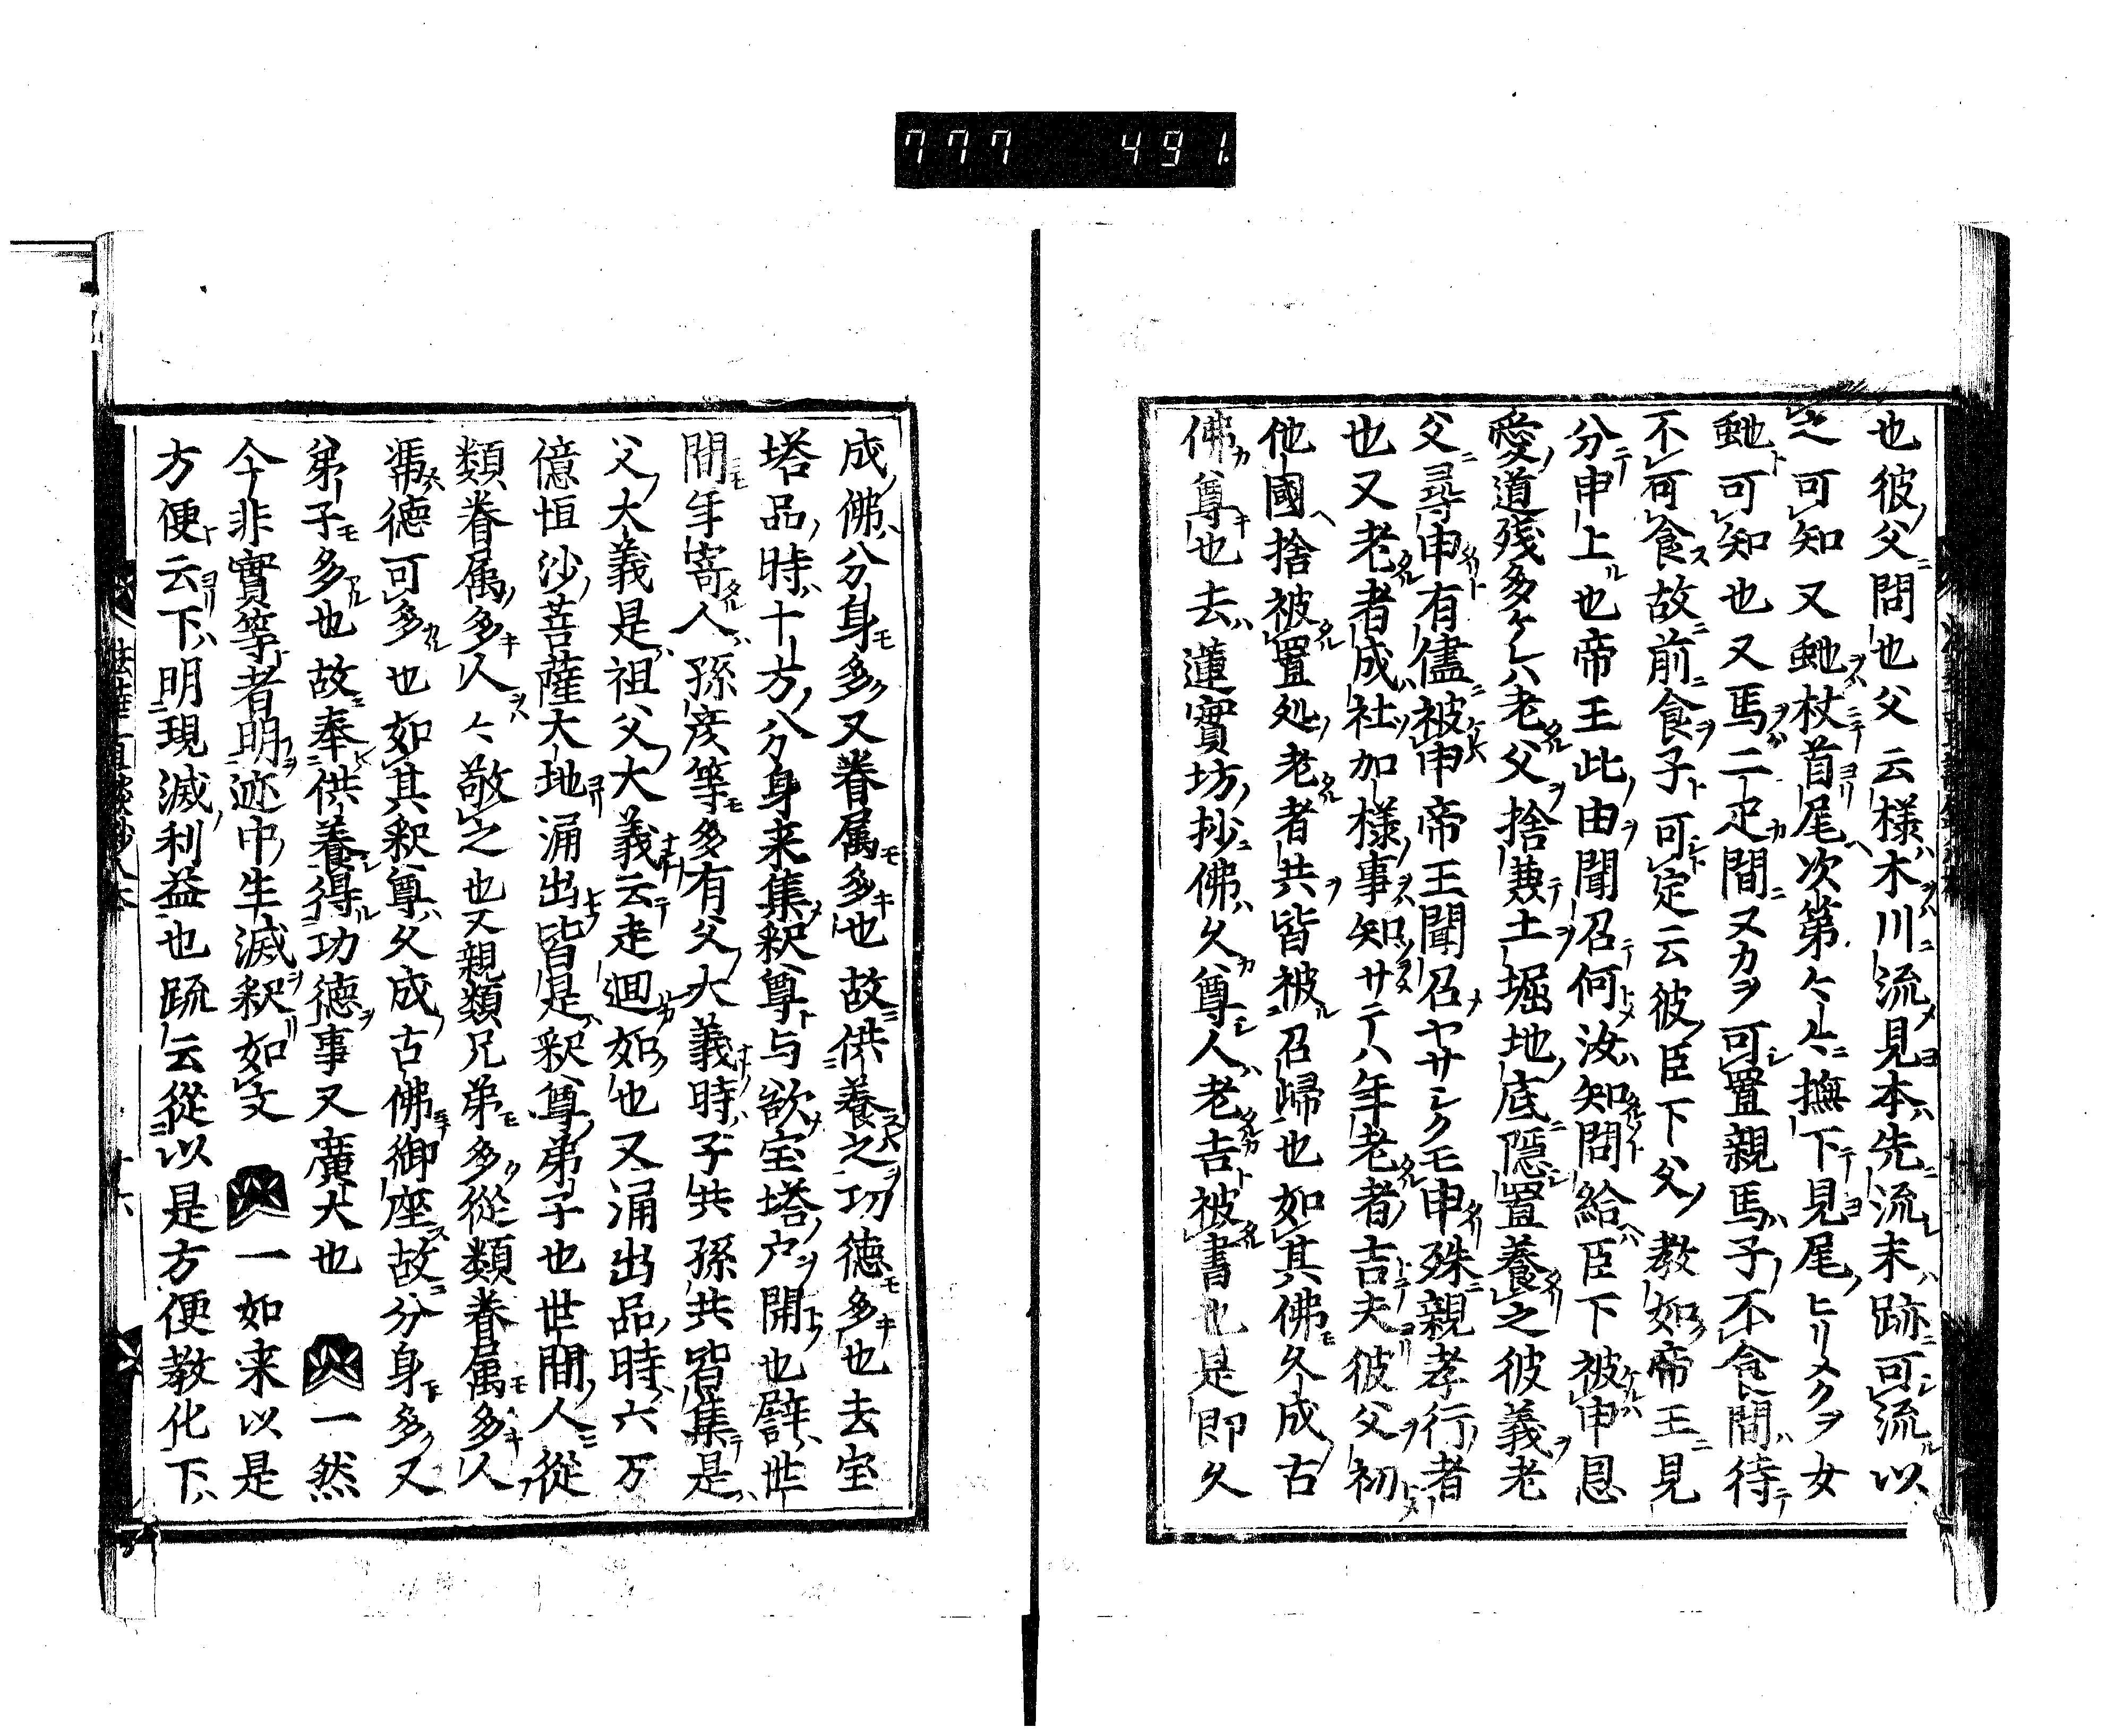 777 491
也彼父問也父云樣木川流見本先流末跡可流以
之可知又虵杖首尾次第〻〻撫下見尾ヒリメクヲ女
虵可知也又馬二疋間又カヲ可置親馬子不食間待
不可食故前食子可定云彼臣下父教如帝王見
分申上也帝王此由聞召何汝知問給臣下被申恩
愛道残多ケレハ老父捨兼土堀地底隠置養之彼義老
父尋申有儘被申帝王聞召ヤサシクモ申殊親孝行者
也又老者成社加樣事知サテハ年老者吉夫彼父初
他國捨被置処老者共皆被召帰也如其佛久成古
佛尊也去蓮實坊抄佛久尊人老吉被書也是即久
成佛分身多又眷属多也故供養之功徳多也去宝
塔品時十方分身来集釈尊与欲宝塔户開也譬世
間年寄人孫彦等多有父大義時子共孫共皆集是
父大義是祖父大義云走廻如也又涌出品時六万
億恒沙菩薩大地涌出皆是釈尊弟子也世間人從
類眷属多人〻敬之也又親類兄弟多從類眷属多人
馮徳可多也如其釈尊久成古佛御座故分身多又
弟子多也故奉供養得功徳事又廣大也 一然
今非實等者明迹中生滅釈如文 一如来以是
方便云下明現滅利益也疏云從以是方便教化下